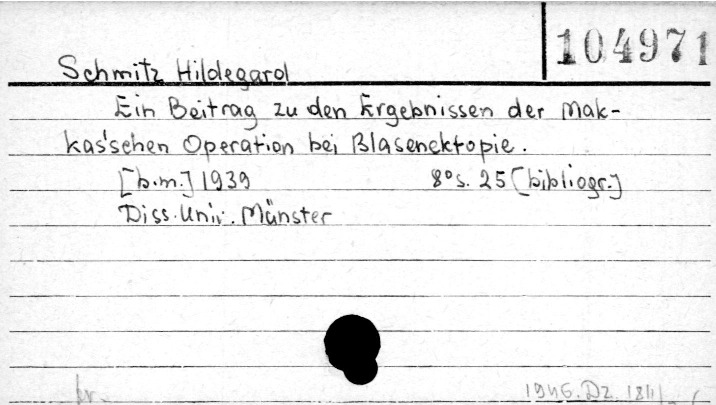 104971
Schmitz Hildegard
Ein Beitrag zu den Ergebnissen der Mak-
kas'schen Operation bei Blasenektopie.
[b.m.] 1939 8° s. 25 [bibliogr.]
Diss. Univ. Münster
1946. Dz.